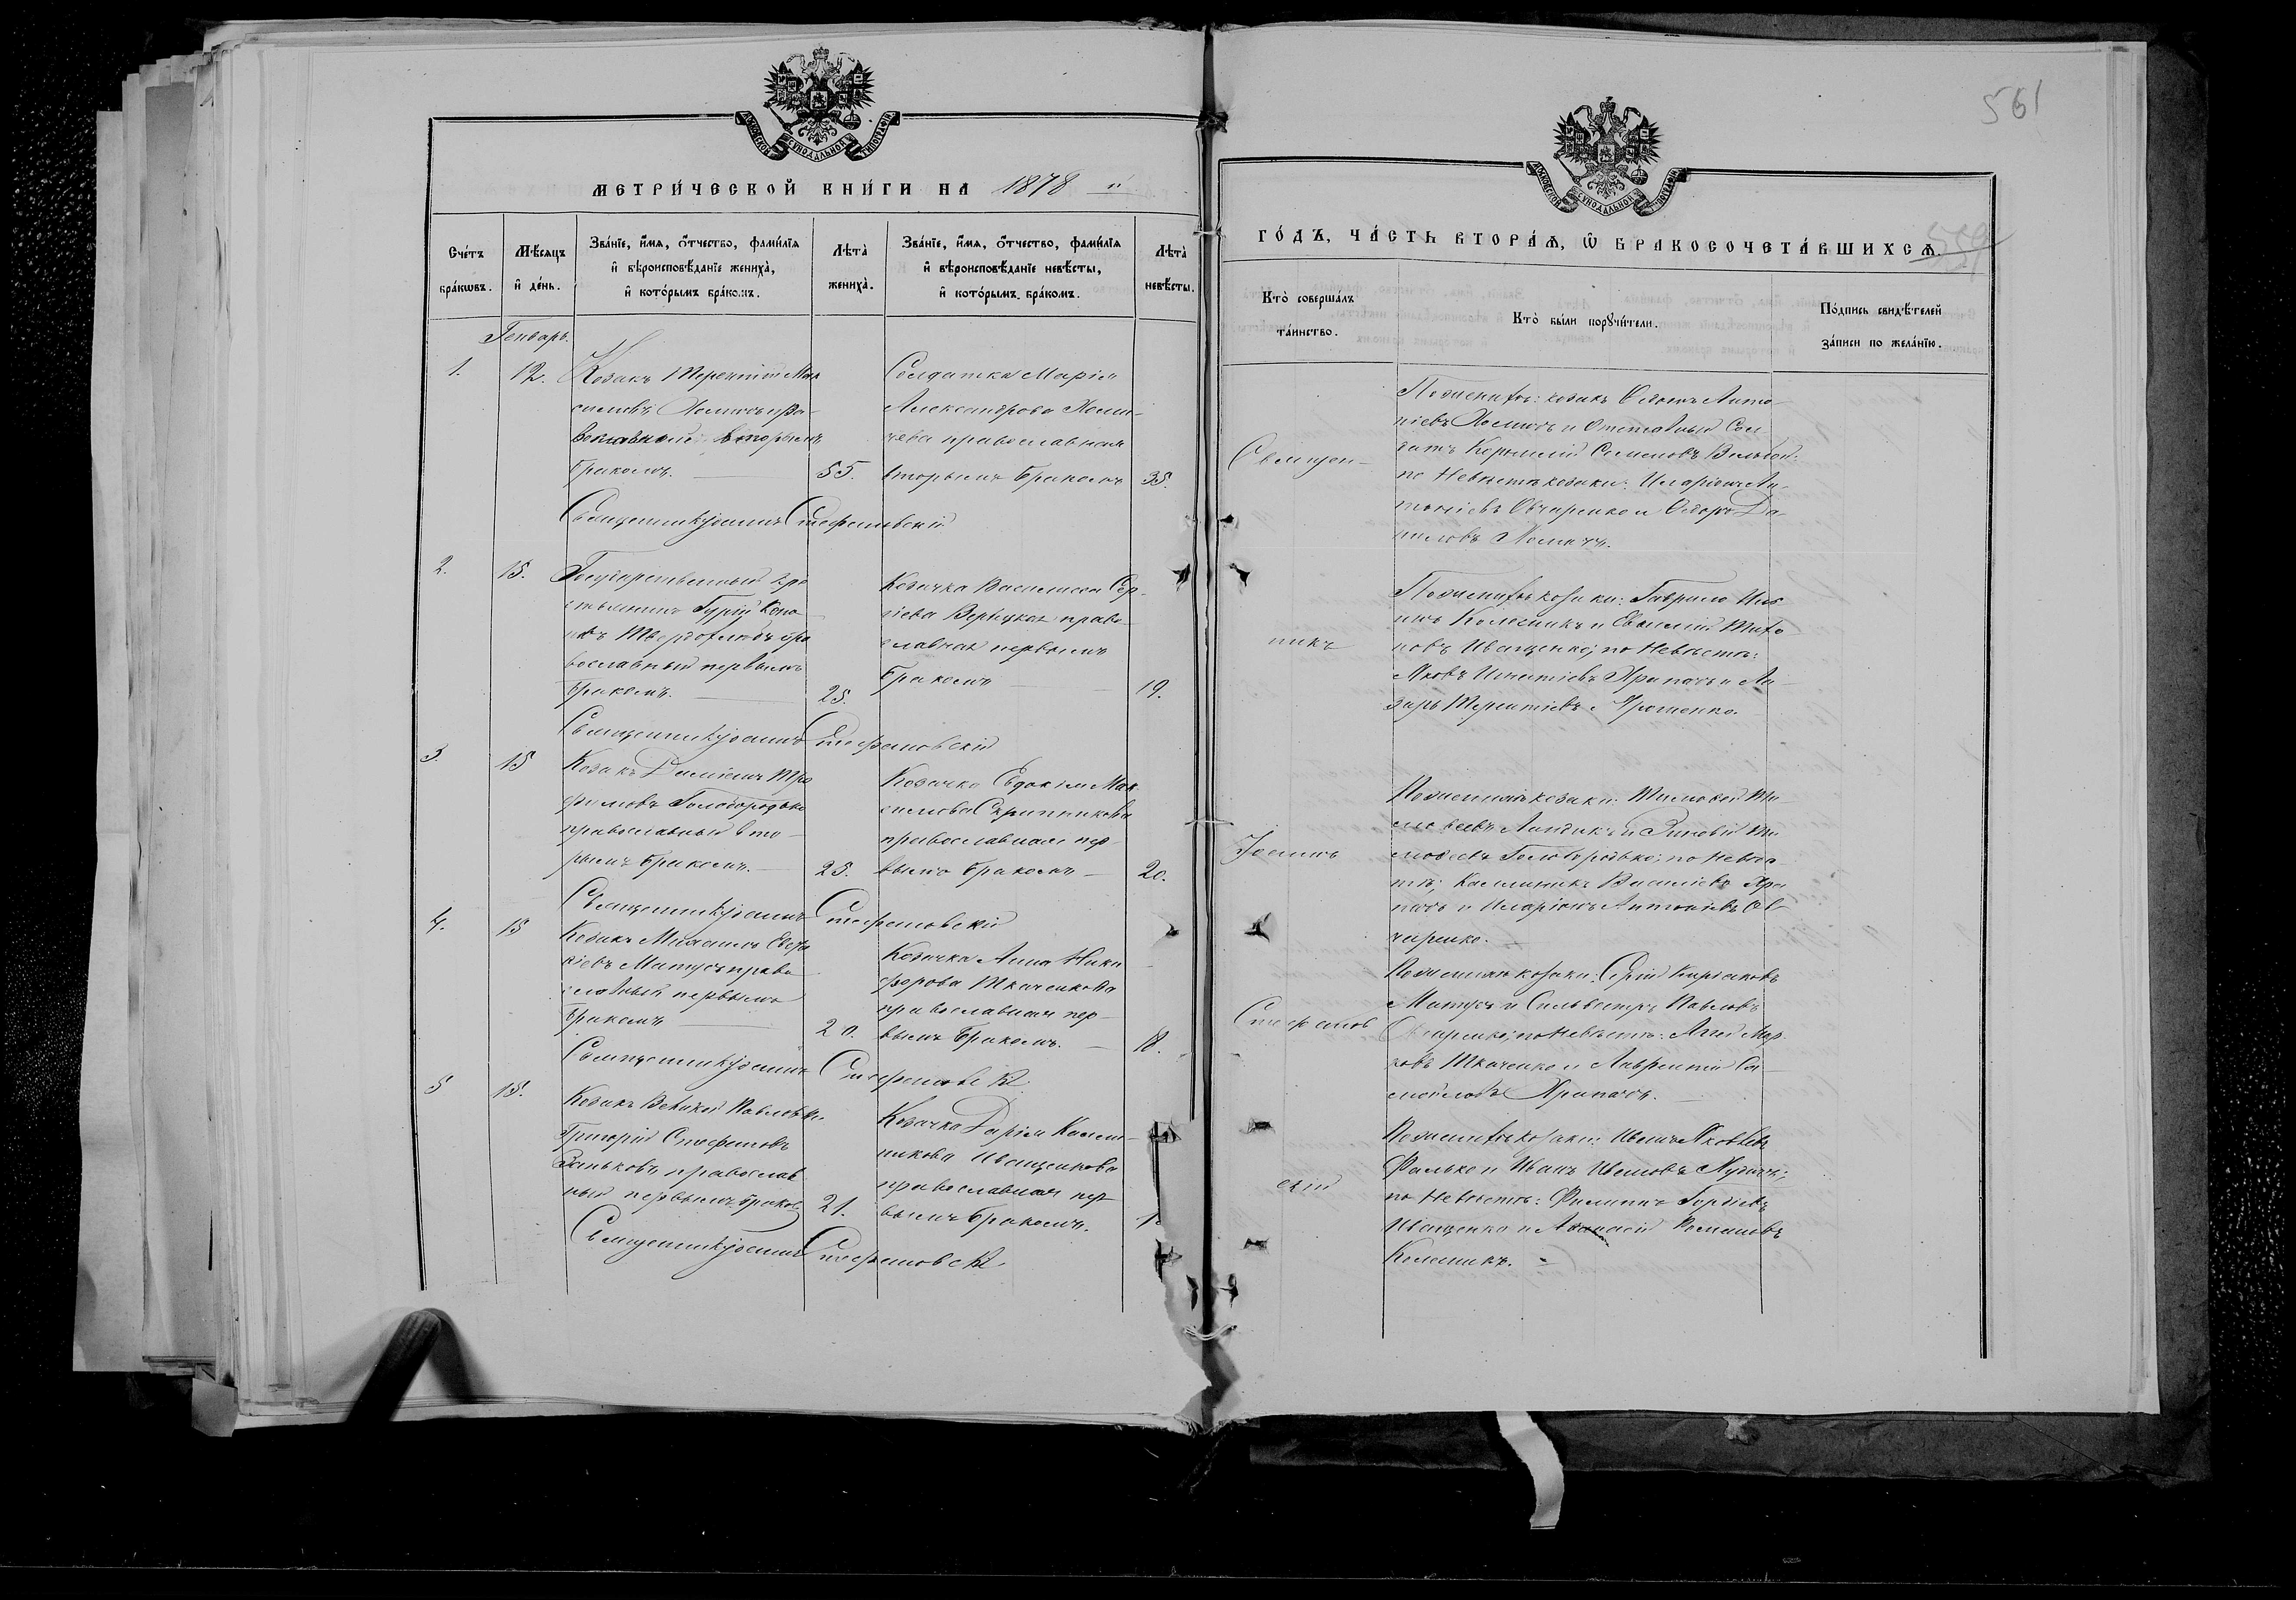 561
МОСКОВСКОЙ СѴНОДАЛЬНОЙ ТИПОГРАФІИ
МЕТРИ́ЧЕСКОЙ КНИ́ГИ НА 1878
Сче́тъ бра́кѡвъ.
Мѣ́сяцъ и҆ де́нь.
Зва́нїе, и҆́мѧ, ѻ҆́тчество, фамѝлїѧ
и҆ вѣроисповѣ́данїе жениха̀,
и҆ кото́рымъ бра́комъ.
Лѣта̀ жениха̀.
Зва́нїе, и҆́мѧ, ѻ҆́тчество, фамѝлїѧ
и҆ вѣроисповѣ́данїе невѣ́сты,
и҆ кото́рымъ бра́комъ.
Лѣта̀ невѣ́сты.
Генварь.
1.
12.
Козакъ Терентій Мак
симовъ Хомичъ пра-
вославный вторымъ
бракомъ.
55.
Солдатка Марія
Александрова Хоми-
чева православная
вторымъ бракомъ
35.
Священникъ Іоаннъ Стефановскій
2.
15.
Государственный кре
стьянинъ Гурій
православный первымъ
бракомъ.
25.
Козачка Василиса Сер-
гіева право-
славная первымъ
бракомъ
19.
Священникъ Іоаннъ Стефановскій
3.
15
Козакъ Даміанъ Тро
фимовъ Голобородько
православный вто-
рымъ бракомъ.
25.
Козачка Евдокія Мак
симова Скрипникова
православная пер
вымъ бракомъ
20.
Священникъ Іоаннъ Стефановскій
4.
15
Козакъ Михаилъ
Матусъ право
славный первымъ
бракомъ
20.
Козачка Анна Ники
форова Ткаченкова
православная пер-
вымъ бракомъ.
18.
Священникъ Іоаннъ Стефановскій
5
15.
Козакъ Павловки
Григорій Стефановъ
Заньковъ православ
ный первымъ браком
21.
Козачка Дарія Калли-
никова Иващенкова
православная пер
вымъ бракомъ.
Священникъ Іоаннъ Стефановскій
МОСКОВСКОЙ СѴНОДАЛЬНОЙ ТИПОГРАФІИ
ГО́ДЪ, ЧА́СТЬ ВТОРА́Ѧ, Ѡ҆ БРАКОСОЧЕТА́ВШИХСѦ.
559
Кто̀ соверша́лъ
та́инство.
Кто̀ бы́ли порꙋчи́тели.
По́дпись свидѣ́телей
за́писи по жела́нїю.
Священ-
никъ
Іоаннъ
Стефанов
скій
По женихѣ: козакъ Анто-
ніевъ Хомичъ и Отставный Сол
датъ Корнилій Семеновъ
по Невѣстѣ козаки: Иларіонъ Ан-
тоніевъ Овчаренко и Ѳедоръ Да-
ниловъ Хомичъ.
По женихѣ козаки: Гавріилъ
Колесникъ и Тихо
новъ Иващенко; по Невѣстѣ:
Яковъ Игнатіевъ Храпачъ и Ла-
зарь Терентіевъ Ярошенко.
По женихѣ козаки: Тимофей Ти-
мофеевъ и Зиновій Ти
мофеевъ Голобородько; по Невѣс
тѣ; Каллиникъ Василіевъ Хра
пачъ и Иларіонъ Антоніевъ Ов-
чаренко.
По женихѣ козаки: Сергій Кирьяковъ
Матусъ и Сильвестръ Павловъ
Овчаренко; по Невѣстѣ: Мар
ковъ Ткаченко и Лаврентій Са
мойловъ Храпачъ.
По женихѣ козаки: Иванъ Яковлевъ
Фалько и Иванъ Ивановъ
по Невѣстѣ: Филиппъ Гордіевъ
Иващенко и Афанасій Романовъ
Колесникъ.